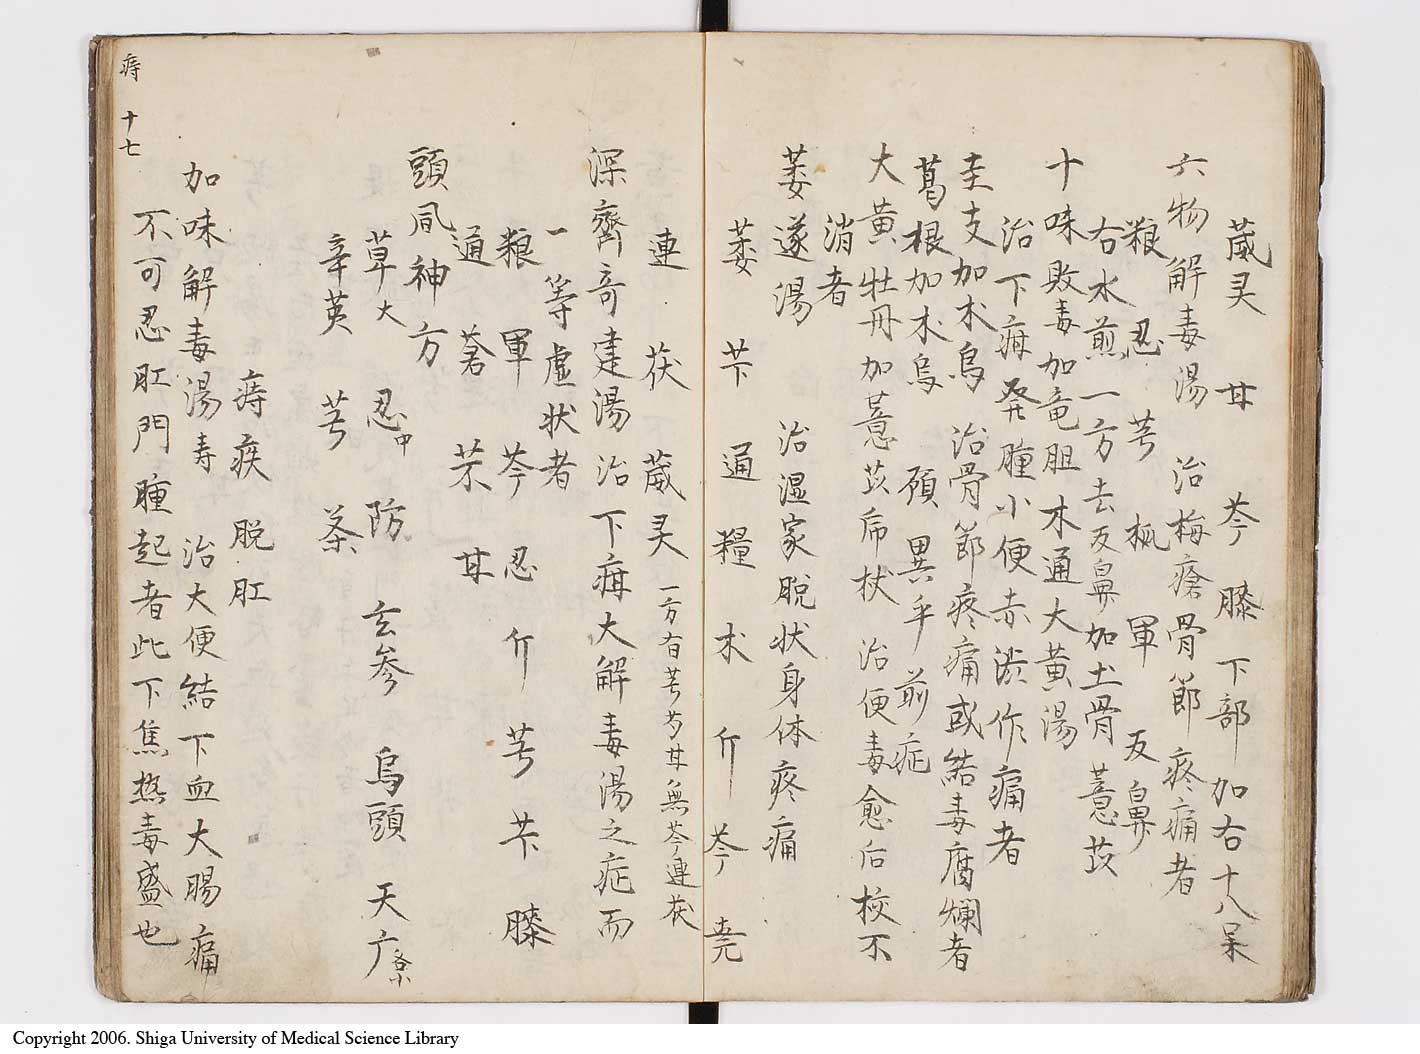 葳灵 甘 芩 膝 下部加右十八呆
六物解毒湯 治梅瘡骨節疼痛者
粮 忍 芎 枛 軍 反鼻
右水煎一方去反鼻加土骨薏苡
十味敗毒加竜胆木通大黄湯
治下疳発腫小便赤渋作痛者
圭支加朮烏 治骨節疼痛或結毒腐爛者
葛根加朮烏 項異乎前症
大黄牡丹加薏苡帋杖 治便毒愈后梭不
消者
萎遂湯 治湿家脱状身体疼痛
萎 芐 通 糧 朮 介 芩 尭
連 茯 葳灵 一方有芎芍甘無芩連茯
深齊竒建湯 治下疳大解毒湯之症而
一等虚状者
粮 軍 芩 忍 介 芎 芐 膝
通 茖 芣 甘
頭風神方
草大 忍中 防 玄参 烏頭 天广各小
辛英 芎 条
痔疾 脱肛
加味解毒湯寿 治大便結下血大腸痛
不可忍肛門腫起者此下焦熱毒盛也
痔 十七
Copyright 2006. Shiga University of Medical Science Library